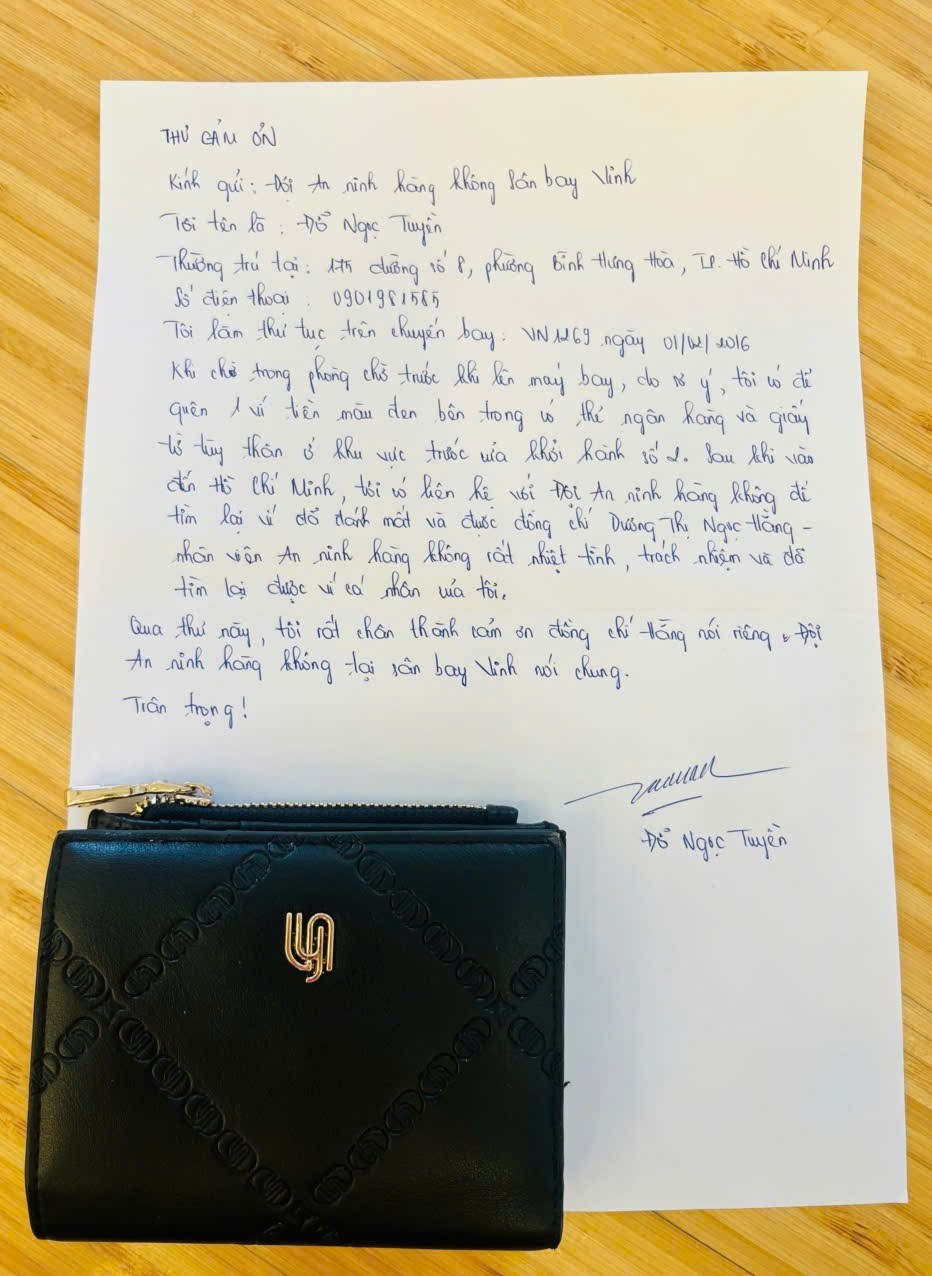 THƯ CẢM ƠN
Kính gửi: Đội An ninh hàng không Sân bay Vinh
Tôi tên là: Đỗ Ngọc Tuyền
Thường trú tại: 175 đường số 8, phường Bình Hưng Hoà, TP. Hồ Chí Minh
Số điện thoại: 0901981585
Tôi làm thủ tục trên chuyến bay: VN1269 ngày 01/02/2016
Khi chờ trong phòng chờ trước khi lên máy bay, do sơ ý, tôi có để
quên 1 ví tiền màu đen bên trong có thẻ ngân hàng và giấy
tờ tùy thân ở khu vực trước cửa khởi hành số 2. Sau khi vào
đến Hồ Chí Minh, tôi có liên hệ với Đội An ninh hàng không để
tìm lại ví đã đánh mất và được đồng chí Dương Thị Ngọc Hằng -
nhân viên An ninh hàng không rất nhiệt tình, trách nhiệm và đã
tìm lại được ví cá nhân của tôi.
Qua thư này, tôi rất chân thành cảm ơn đồng chí Hằng nói riêng & Đội
An ninh hàng không tại sân bay Vinh nói chung.
Trân trọng!
Đỗ Ngọc Tuyền